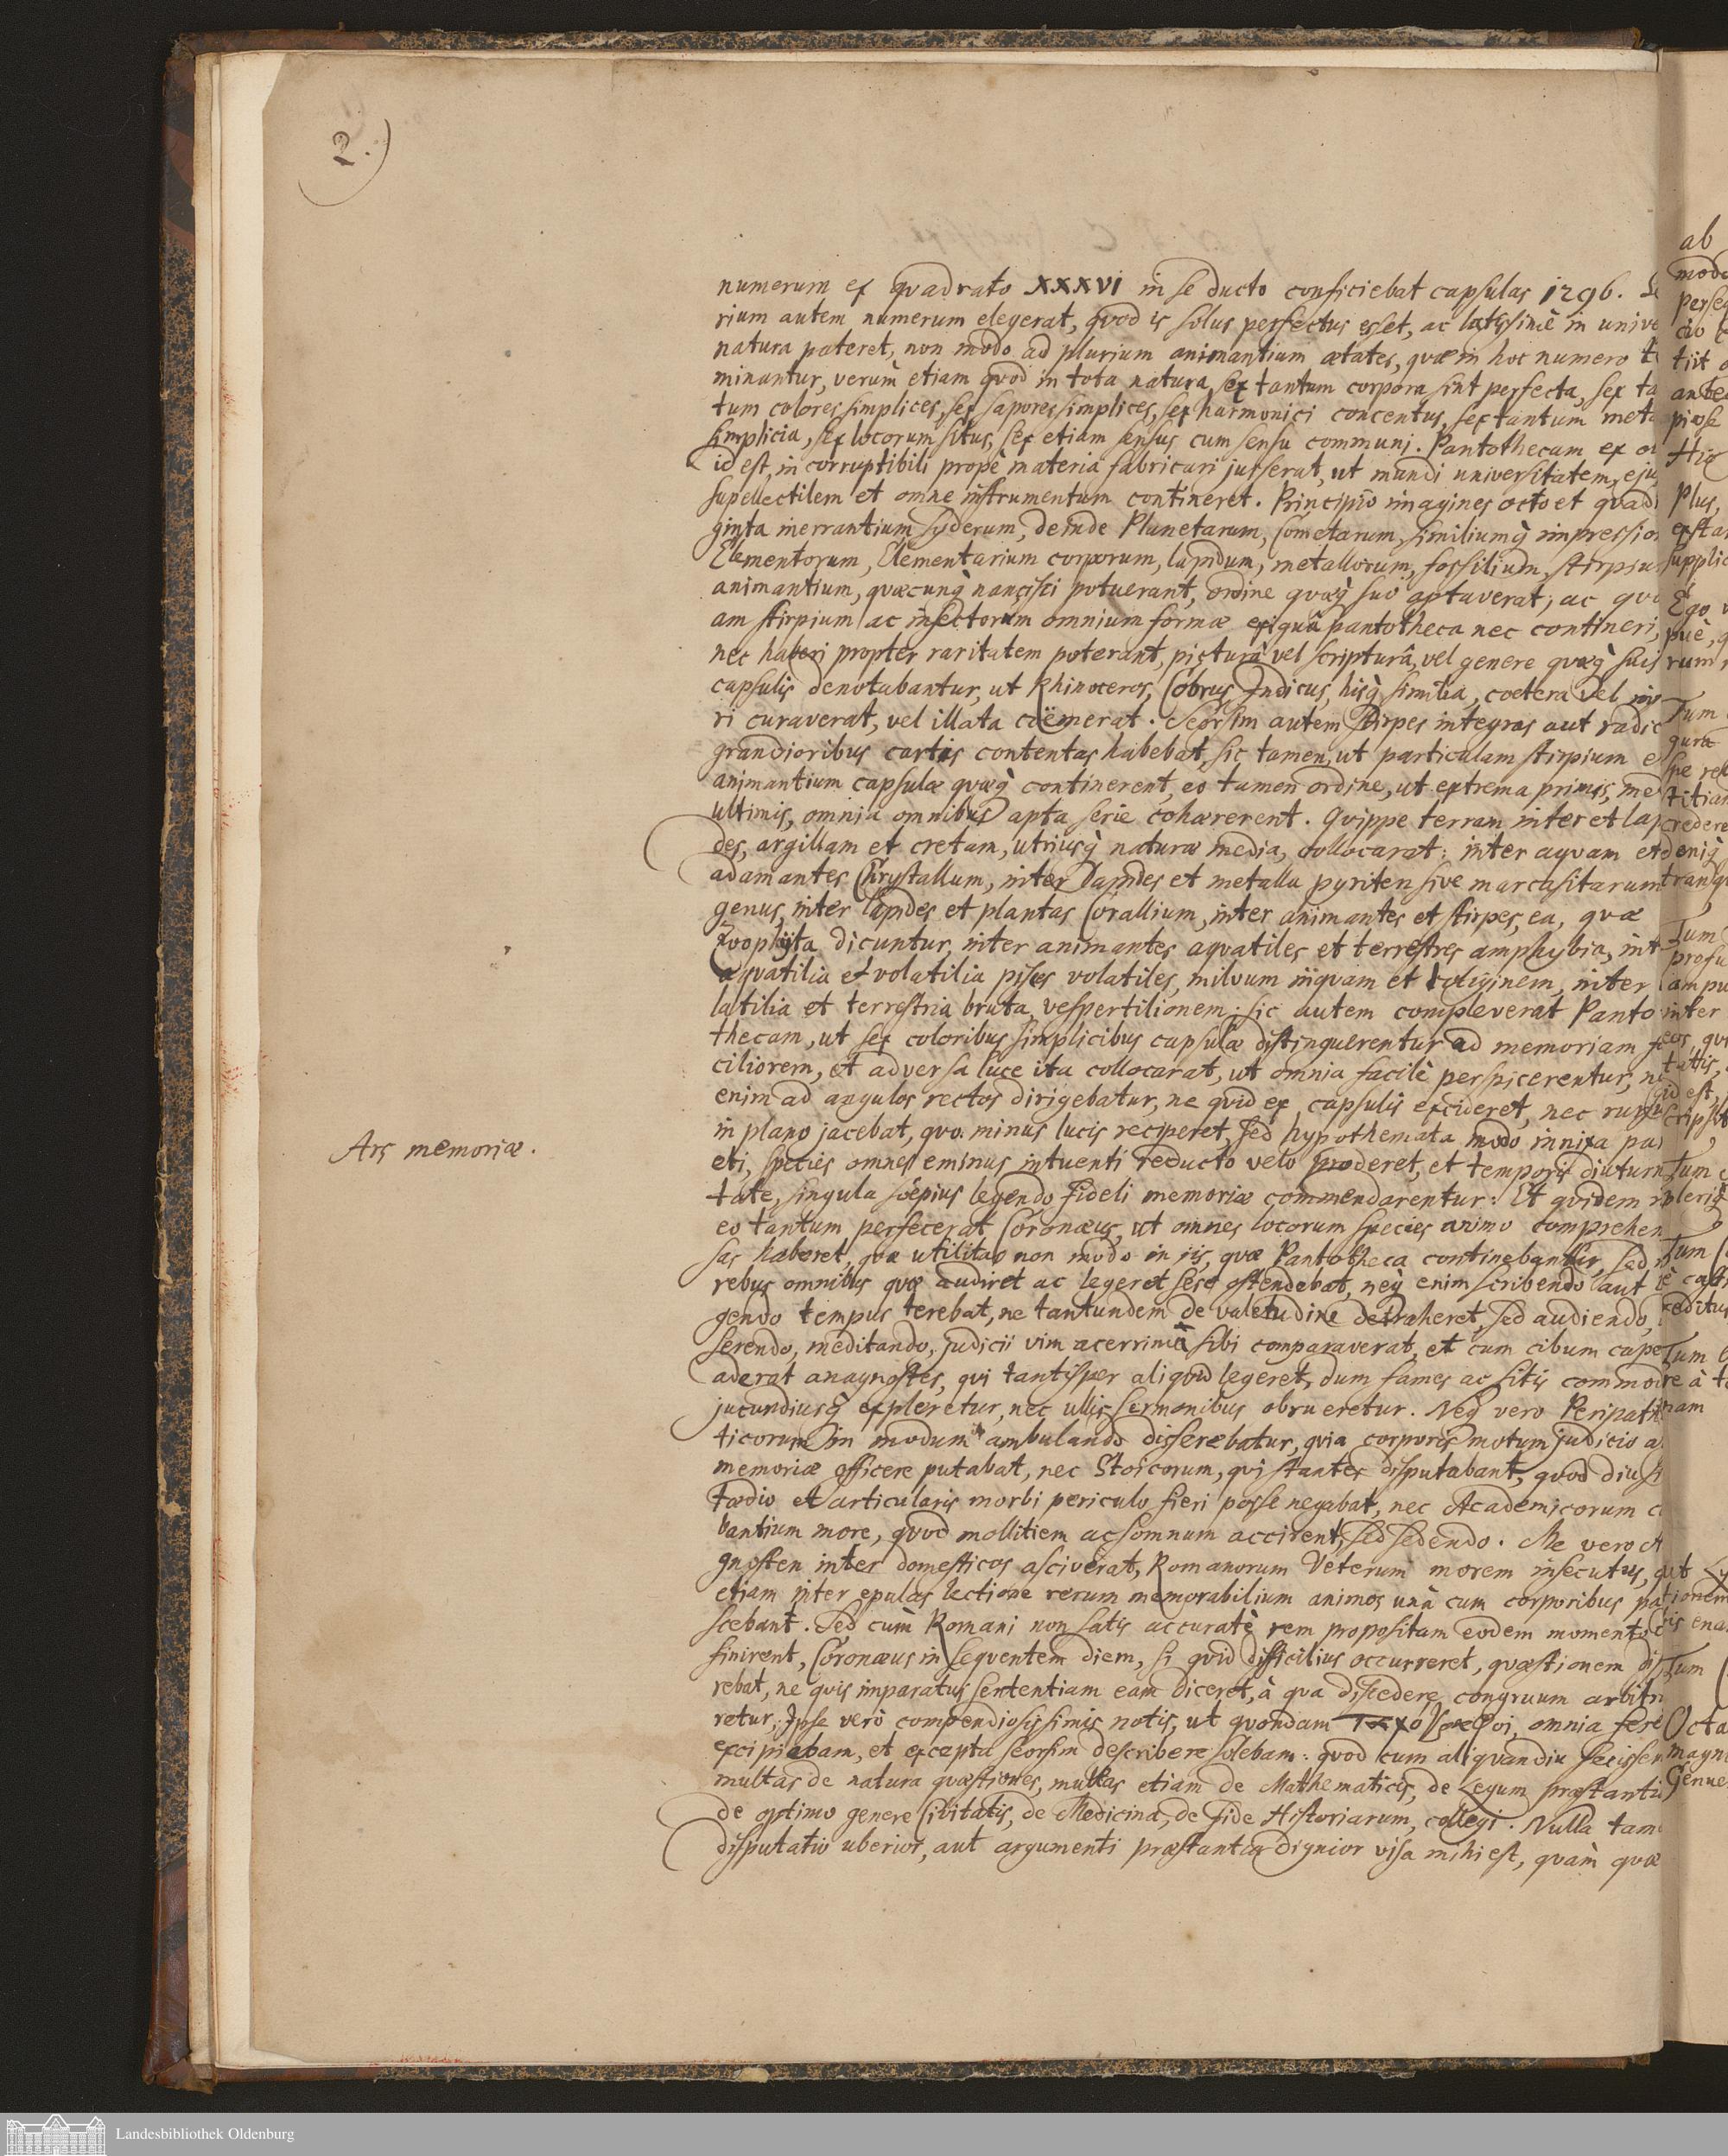 2.)
numerum ex quadrato XXXVI in se ducto conficiebat capsulas 1296. Se
rium autem numerum elegerat, quod is solus perfectus esset, ac latissimè in unive
natura pateret, non modo ad plurium animantium ætates, quæ in hoc numero te
minantur, verùm etiam quod in tota natura sex tantum corpora sint perfecta, sex ta
tum colores simplices, sex sapores simplices, sex harmonici concentus, sex tantum meta
simplicia, sex locorum situs, sex etiam sensus cum sensu communi. Pantothecam ex o
id est, incorruptibili propè materiâ fabricari jusserat, ut mundi universitatem, eju
supellectilem et omne instrumentum contineret. Principiò imagines octo et quad
ginta inerrantium syderum, deinde Planetarum, Cometarum, similiumq impressio
Elementorum, Elementarium corporum, lapidum, metallorum, fossilium, stirpiu
animantium, quæcunq nancisci potuerant, ordine quæq suo aptaverat, ac quo
am stirpium ac insectorum omnium formæ exiguâ pantotheca nec contineri,
nec haberi propter raritatem poterant, picturâ vel scripturâ, vel genere quæq suis
capsulis denotabantur, ut Rhinoceros, Cobrus Indicus, hisq similia, coetera vel
ri curaverat, vel illata coëmerat. Seorsim autem stirpes integras aut radic
grandioribus cartis contentas habebat, sic tamen, ut particulam stirpium e
animantium capsulæ quæq continerent, eo tamen ordine, ut extrema primis, me
ultimis, omnia omnibus apta serie cohærerent. Quippe terram inter et lap
des, argillam et cretam, utriusq naturæ media, collocarat: inter aquam et
adamantes Chrystallum, inter lapides et metalla pyriten sive marcasitarum
genus, inter lapides et plantas Corallium, inter animantes et stirpes, ea, quæ
Zoophyta dicuntur, inter animantes aquatiles et terrestres amphybia, int
aquatilia et volatilia pisces volatiles, milvum et inter
latilia et terrestria bruta, vespertilionem; sic autem compleverat Panto
thecam, ut sex coloribus simplicibus capsulæ distinguerentur ad memoriam f
ciliorem, et adversa luce ita collocarat, ut omnia facilè perspicerentur, n
enim ad angulos rectos dirigebatur, ne quid ex capsulis excideret, nec rursus
in plano jacebat, quo minus lucis reciperet, sed hypothemata modo innixa par
eti, species omnes eminus intuenti reducto velo proderet, et temporis diuturn
Ars memoriæ.
tate, singula sæpius legendo fideli memoriæ commendarentur: Et quidem
eo tantum perfecerat Coronæus, ut omnes locorum species animo comprehen
sas haberet, quæ utilitas non modo in iis, quæ Pantotheca continebantur, sed
rebus omnibus quæ audiret ac legeret sese ostendebat, neq enim scribendo aut
gendo tempus terebat, ne tantundem de valetudine detraheret, sed audiendo,
serendo, meditando, judicii vim acerrimâ sibi comparaverat, et cum cibum cape
aderat anagnostes, qui tantisper aliquid legeret, dum fames ac sitis commo
jucundiusq expleretur, nec ullis sermonibus obrueretur. Neq vero Peripat
ticorum in modum ambulando disserebatur, quia corporis motum judicio a
memoriæ officere putabat, nec Stoicorum, qui stantes disputabant, quod diu si
tædio et articularis morbi periculo fieri posse negabat, nec Academicorum c
bantium more, quod mollitiem ac somnum accirent, sed sedendo. Me vero A
gnosten inter domesticos asciverat, Romanorum Veterum morem insecutus, q
etiam inter epulas lectione rerum memorabilium animos unà cum corporibus pa
scebant. Sed cum Romani non satis accuratè rem propositam eodem momento
finirent, Coronæus in sequentem diem, si quid difficilius occurreret, quæstionem di
rebat, ne quis imparatus sententiam eam diceret, à qua discedere congruum arbitr
retur. Ipse verò compendiosissimis notis, ut quondam omnia fere
excipiebam, et excepta seorsim describere solebam: quod cum aliquandiu fecissem
multas de natura quæstiones, multas etiam de Mathematicis, de Legum præstanti
de optimo genere Civitatis, de Medicina, de Fide Historiarum, collegi. Nulla tam
disputatio uberior, aut argumenti præstantia dignior visa mihi est, quàm quæ
ab
Plus,
Ego
Tum
Tum
inter
Tum
Tum
Tum
Tum
Landesbibliothek Oldenburg